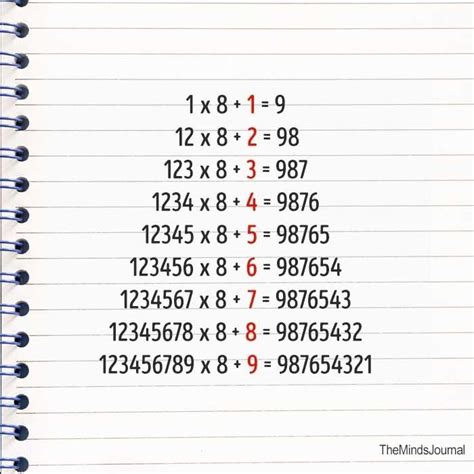 1 x 8 + 1 = 9
12 x 8 + 2 = 98
123 x 8 + 3 = 987
1234 x 8 + 4 = 9876
12345 x 8 + 5 = 98765
123456 x 8 + 6 = 987654
1234567 x 8 + 7 = 9876543
12345678 x 8 + 8 = 98765432
123456789 x 8 + 9 = 987654321
TheMindsJournal